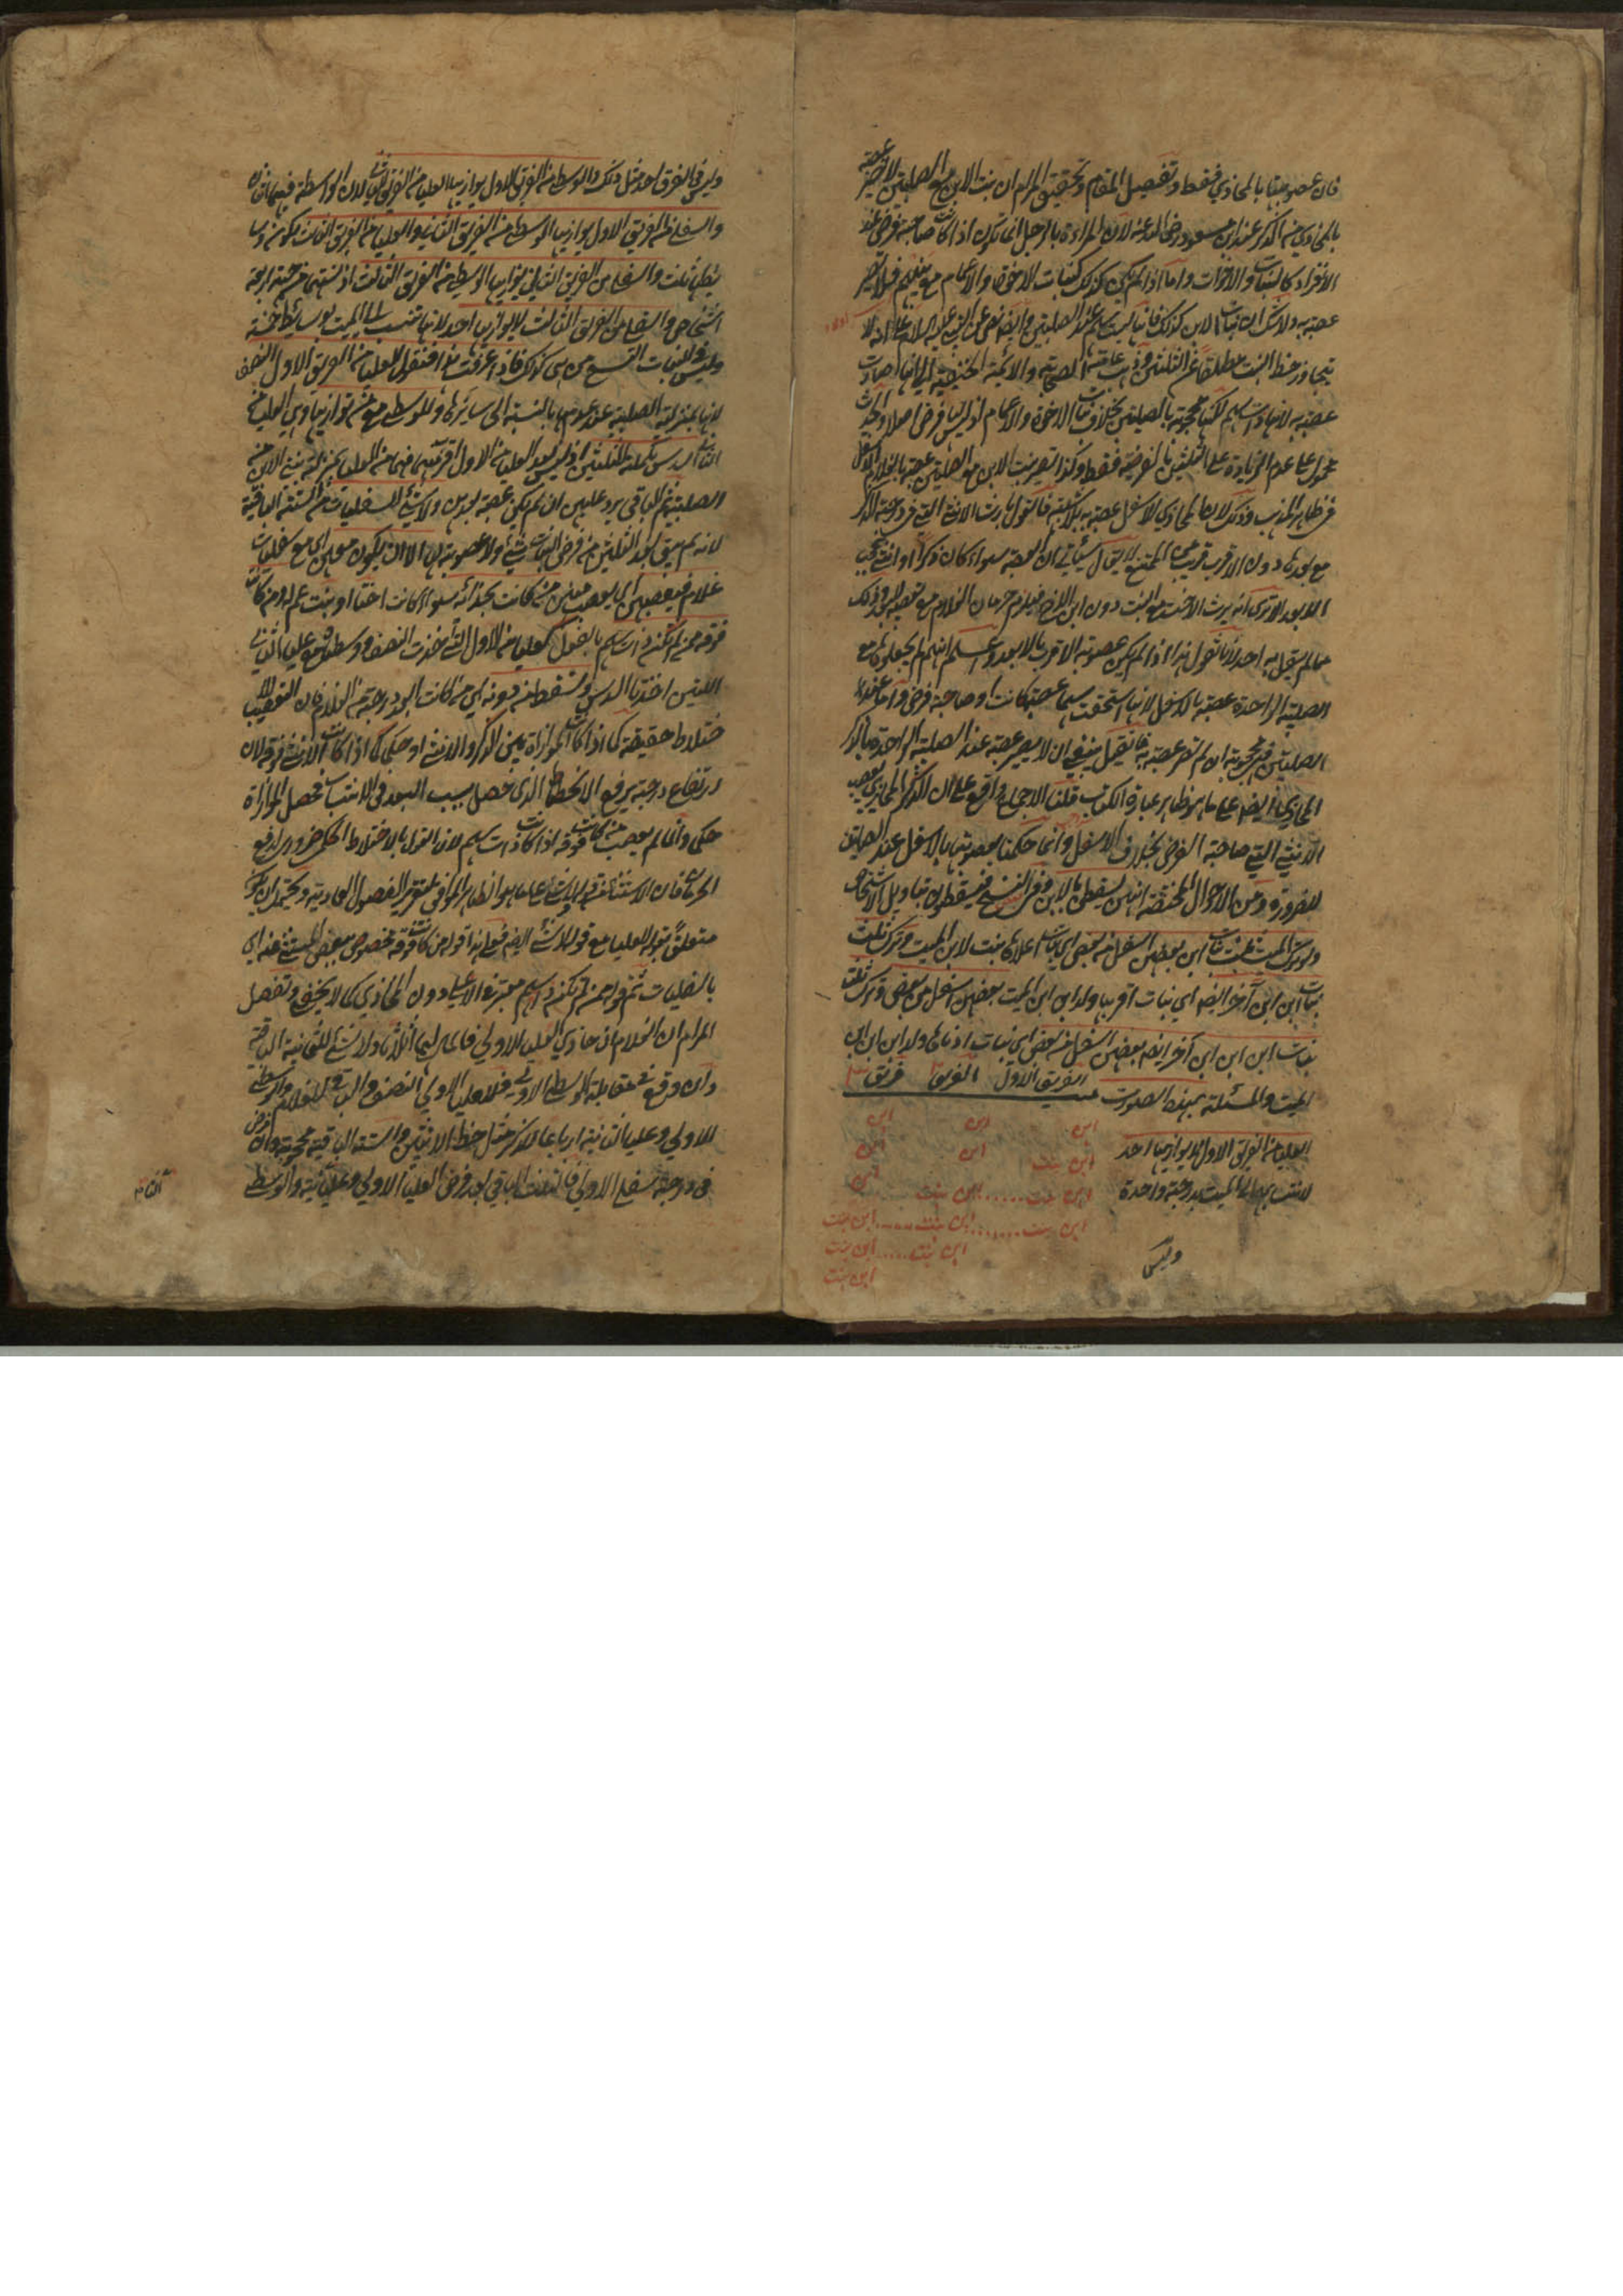 فان عصوبتها بالمحاذي فقط وتفصيل المقام وتحقيق المرام ان بنت الابن مع الصلبيتين لا تصير عصبة
بالمحاذي من الذكر عند ابن مسعود رضي الله عنه لان المراءة بالرجل انما تكون اذا كانت صاحبة فرض عند
الانفراد كالبنات والاخوات واما اذا لم تكن كذلك كبنات الاخوة والاعمام مع بنيهم فلا تصير
عصبة به ولا شك ان بنات الابن كذلك
يتجاوز حظ البنت مطلقا عن الثلثين وذهب عامة الصحابة والائمة الحنفية الى انها صارت
عصبة به لانها ذات سهم لكنها محجوبة بالصلبيتين بخلاف بنات الاخوة والاعمام اذ ليس لها فرض اصلا والحديث
محمول على عدم الزيادة على الثلثين بالفرضية فقط وكذا تصير بنت الابن مع الصلبيتين عصبة بالغلام الاسفل
في ظاهر المذهب وذلك لان المحاذي للاسفل عصبة به بلا شبهة فالقول بارث الانثى التي في درجة الذكر
مع بعدها دون الاقرب قريب من الممتنع لا يقال سيأتي ان العصبة سواء كان ذكرا او انثى يحجب
الابعد الا ترى انه يرث الاخت مع البنت دون ابن الاخ فيلزم حرمان الغلام مع تعصيبه وذلك
مما لم يقل به احد لانا نقول هذا اذا لم يكن عصوبة الاقرب بالابعد واعلم انهم لم يجعلوا مع
الصلبية الواحدة عصبة بالاسفل لانها استحقت سهما عصبة كانت او صاحبة فرض واما عند
الصلبيتين فهي محجوبة ان لم تصر عصبة به فان قيل ينبغي ان لا يصير عصبة عند الصلبية الواحدة بالذكر
المحاذي ايضا على ما هو ظاهر عبارة الكتاب قلنا الاجماع واقع على ان الذكر المحاذي يعصب
الانثى التي صاحبة الفرض بخلاف الاسفل وانما حكمنا بعصوبتها بالاسفل عند الصلبيتين
للضرورة ومن الاحوال المختصة انهن يسقطن بالابن وفي النسخ فيسقطون بتاويل الاشخاص
ولو ترك الميت ثلث بنات ابن بعضهن اسفل من بعض اي بنات اعلاها بنت لابن الميت وترك ثلث
بنات ابن ابن آخر ايضا اي بنات اقربها ولد ابن ابن الميت بعضهن اسفل من بعض وترك ثلث
بنات ابن ابن ابن آخر ايضا بعضهن اسفل من بعض اي بنات ادناها ولد ابن ابن ابن
الميت والمسئلة بهذه الصورت الفريق الاول الفريق فريق
ابن ابن ابن
العليا من الفريق الاول لا يوازيها احد ابن بنت ابن ابن
لانتسابها الى الميت بدرجة واحدة ابن بنت ...... ابن بنت ابن
ابن بنت ....... ابن بنت ..... ابن بنت
ابن بنت ..... ابن بنت
ابن بنت
وليس
وليس في الفرق احد مثل ذلك والوسطى من الفريق الاول يوازيها العليا من الفريق الثاني لان الواسطة فيهما اثنان
والسفلى من الفريق الاول يوازيها الوسطى من الفريق الثاني والعليا من الفريق الثالث لكون وسا
يطها ثلث والسفلى من الفريق الثاني يوازيها الوسطى من الفريق الثالث اذ تنتهي درجته اربعة
اشخاص والسفلى من الفريق الثالث لا يوازيها احد لانها تنتسب الى الميت بوسائط خمسة
وليس في البنات التسع من هي كذلك فاذا عرفت هذا فنقول للعليا من الفريق الاول النصف
لانها بمنزلة الصلبية عند عدمها بالنسبة الى سائرها وللوسطى مع من توازيها وهي العليا من
الثاني السدس تكملة للثلثين
الصلبية ثم الباقي يرد عليهن ان لم يكن عصبة ولا شيء للسفليات من الستة الباقية
لانه لم يبق بعد الثلثين من فرض البنات شيء ولا عصوبة لهن الا ان يكون معهن اي مع سفليات
غلام فيعصبهن اي يعصب من كانت بحذائه سواء كانت اختا او بنت عم له ومن كانت
فوقه ممن لم تكن ذات سهم بالفعل كعليا من الاول التي اخذت النصف ووسطى مع عليا الثاني
اللتين اخذتا السدس ويسقط من دونه اي من كانت ابعد درجة من الغلام فان التعصيب للا
ختلاط حقيقة كما اذا كانت الموازاة بين الذكر والانثى او حكما كما اذا كانت الانثى فوقه لان
ارتفاع درجته يرفع الانحطاط الذي حصل بسبب البعد في الانتساب فحصل الموازاة
حكما وانما لم يعصب من كانت فوقه اذا كانت ذات سهم لان القول بالاختلاط الحكمي ضروري لدفع
الحرمان
متعلق بقوله للعليا مع قوله ولا شيء
بالسفليات ثم قوله ممن لم تكن ذات سهم معتبر في الاعلى دون المحاذي كما لا يخفى وتفصيل
المرام ان الغلام ان حاذى العليا الاولى فالمال بينهما اثلاثا ولا شيء للثمانية الباقية
وان وقع في مقابلة الوسطى الاولى فللعليا الاولى النصف والباقي للغلام والوسطى
الاولى وعليا الثانية ارباعا للذكر مثل حظ الانثيين والستة الباقية محجوبة وان فرض
في درجة سفلى الاولى فالثلث الباقي بعد فرض العليا الاولى وعليا ثانية والوسطى